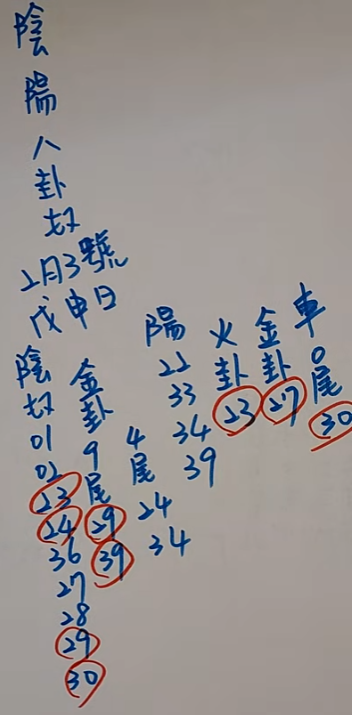 陰陽八卦㪯
2月3號
戊申日
陰㪯 01 02 23 24 36 27 28 29 30
金卦 9尾 29 39
4尾 24 34
陽 22 33 34 39
火卦 23
金卦 27
車 0尾 30